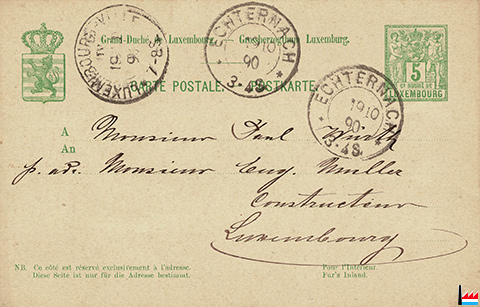 Grand-Duché de Luxembourg. Grossherzogthum Luxemburg.
CARTE POSTALE. POSTKARTE.
5
LUXEMBOURG
LUXEMBOURG-VILLE
ECHTERNACH
1910
90
3-4S.
ECHTERNACH
1910
90.
3-4S.
A
An
Monsieur Paul Wurth
p. adr. Monsieur Eug. Muller
Constructeur
Luxembourg
NB. Ce côté est réservé exclusivement à l'adresse.
Diese Seite ist nur für die Adresse bestimmt.
Pour l'Intérieur.
Für's Inland.